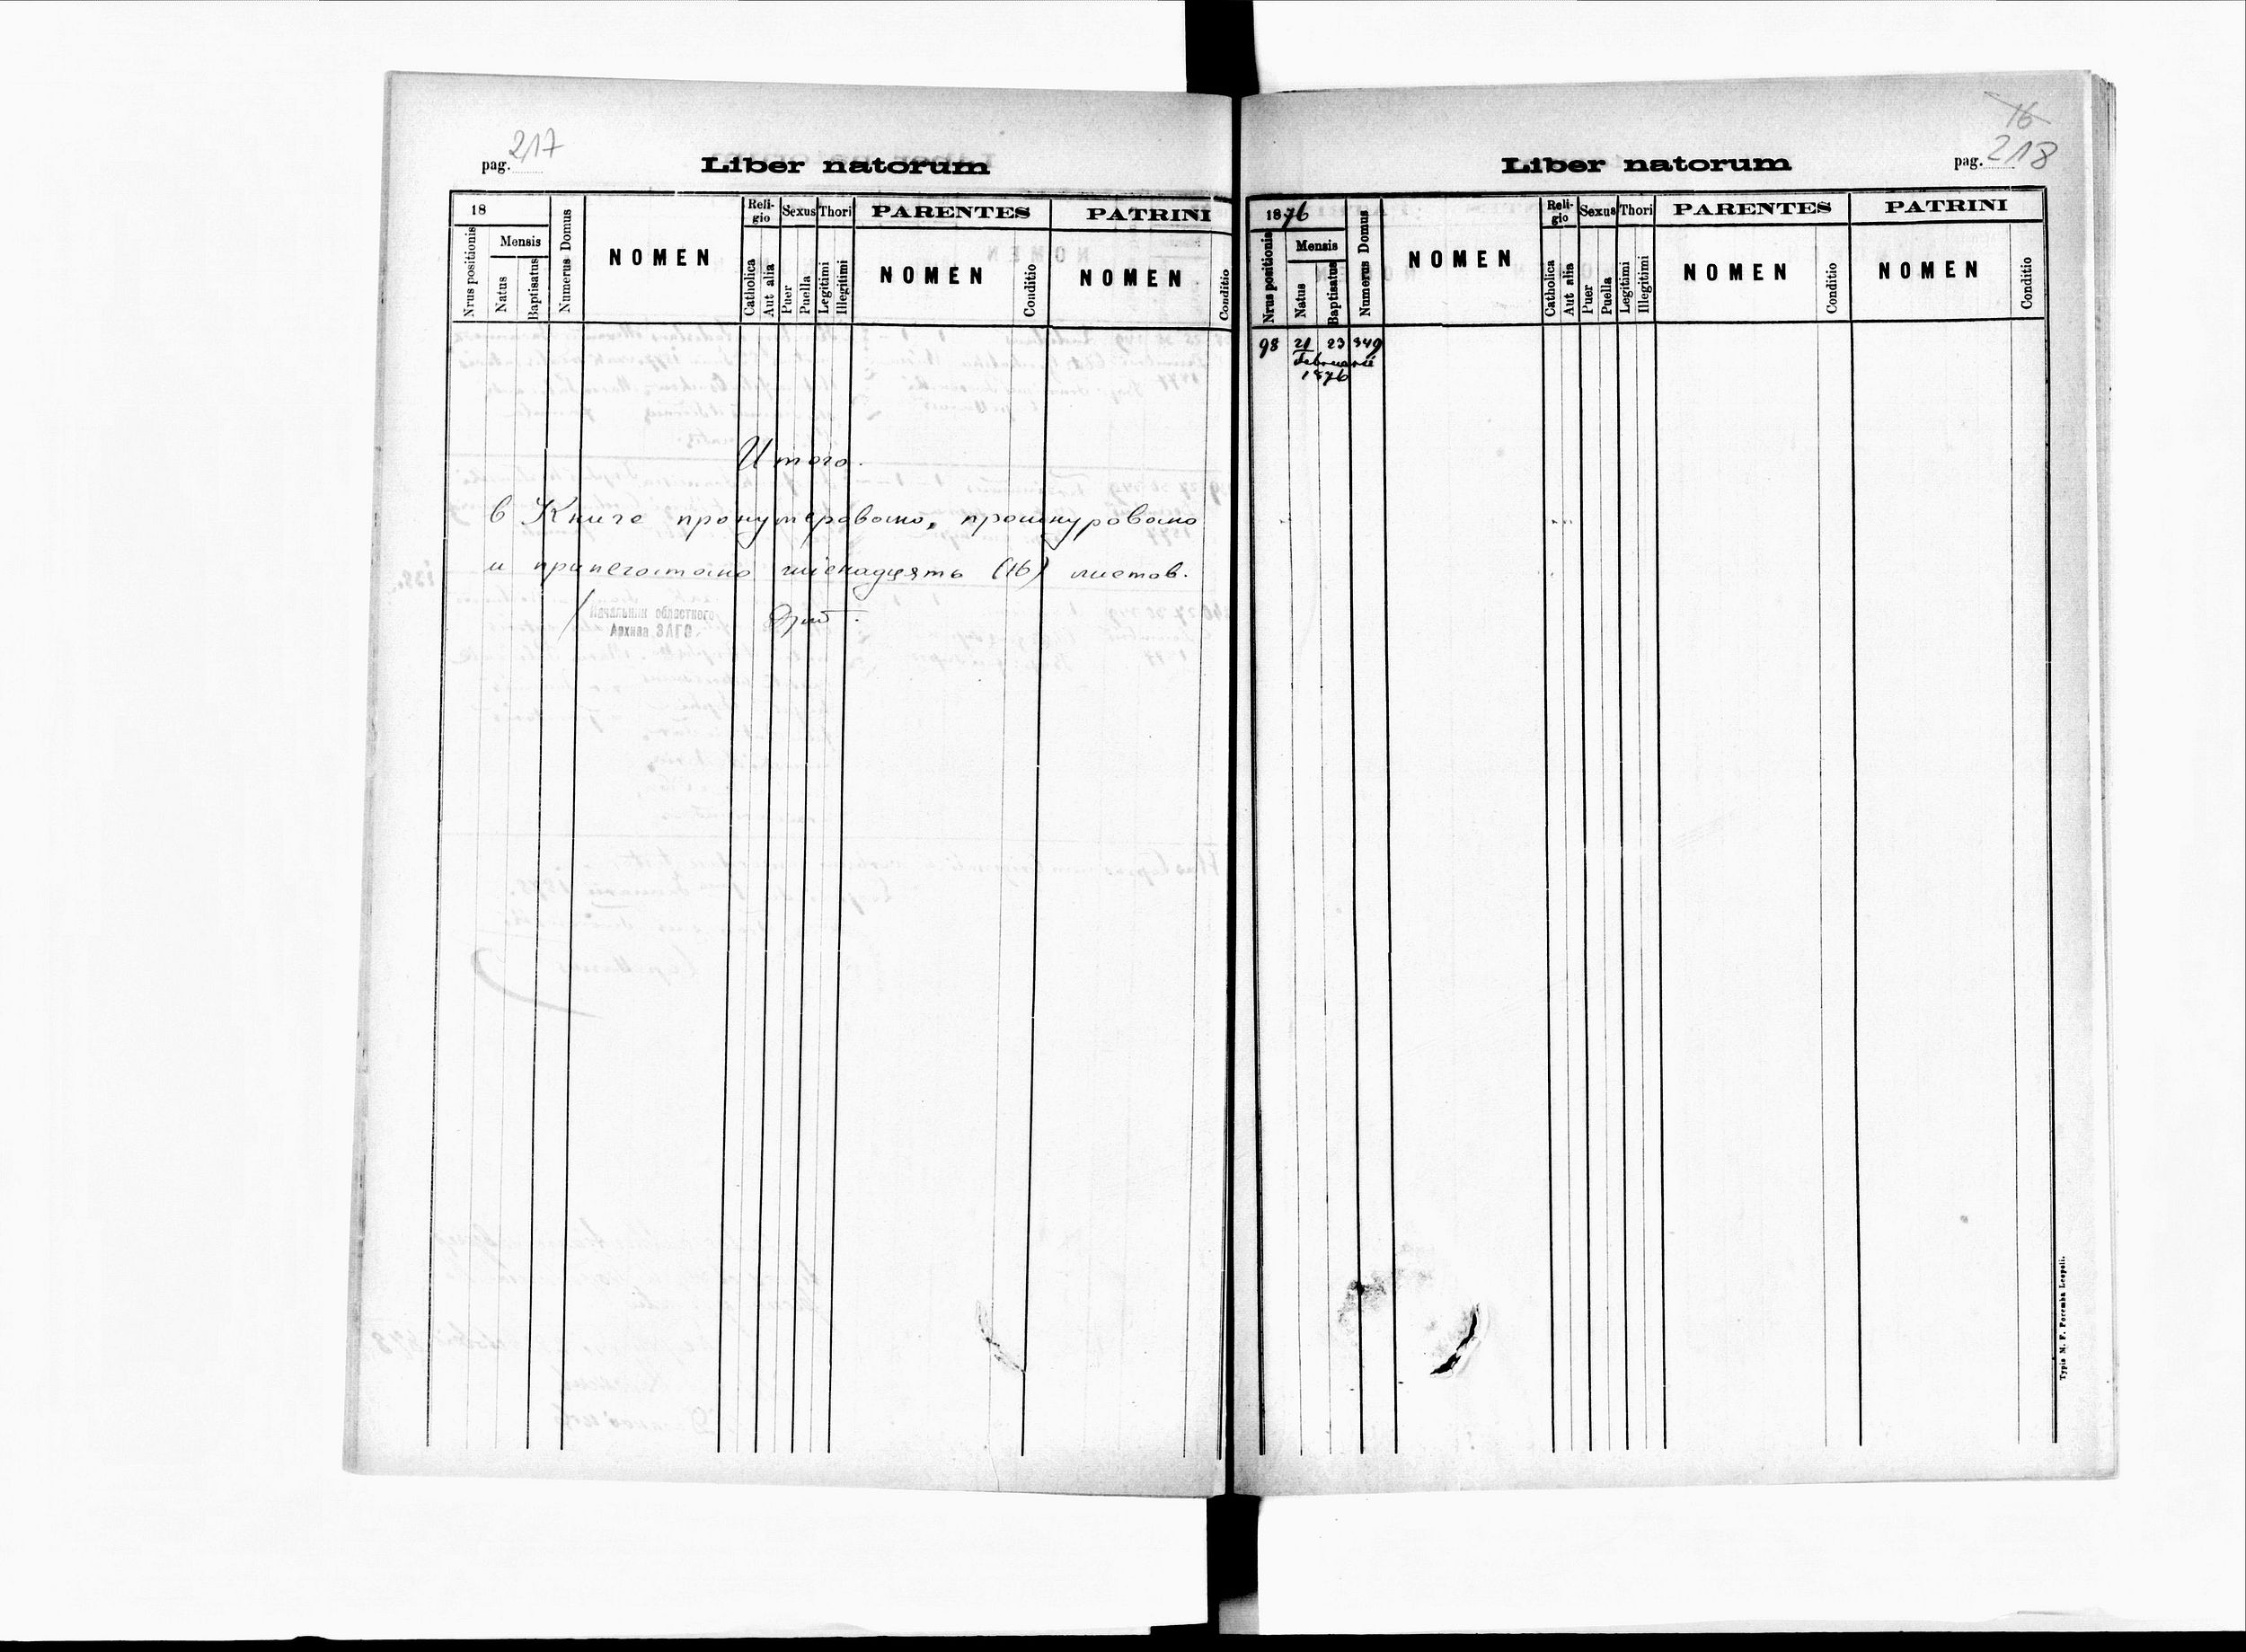 pag. 217
Liber natorum
18
Nrus positionis
Mensis
Natus
Baptisatus
Numerus Domus
NOMEN
Religio
Catholica
Aut alia
Sexus
Puer
Puella
Thori
Legitimi
Illegitimi
PARENTES
NOMEN
Conditio
PATRINI
NOMEN
Conditio
Итого.
в Книге пронумеровано, прошнуровано
и припечатано шіснадцять (16) листов.
Начальник областного
Архива ЗАГС
16
pag. 218
Liber natorum
1876
Nrus positionis
Mensis
Natus
Baptisatus
Numerus Domus
NOMEN
Religio
Catholica
Aut alia
Sexus
Puer
Puella
Thori
Legitimi
Illegitimi
PARENTES
NOMEN
Conditio
PATRINI
NOMEN
Conditio
98 21 23 349
Februarii
1876
Typis M. F. Poremba Leopoli.